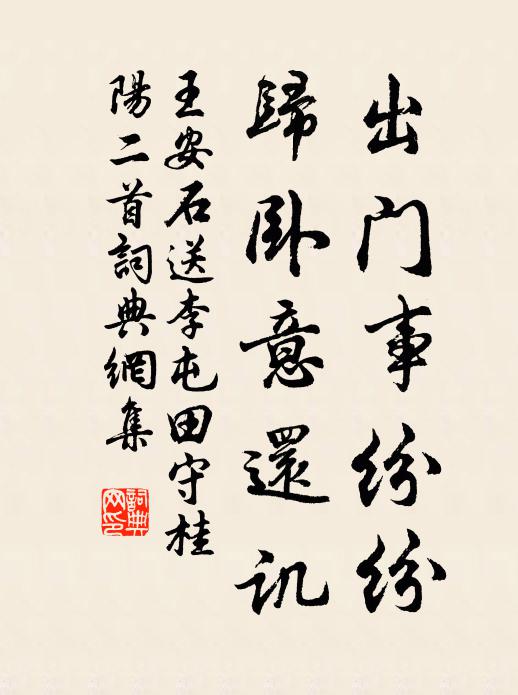 出門事紛紛
歸臥意還
王安石送李屯田守桂
陽二首詞典網集
詞典
网印